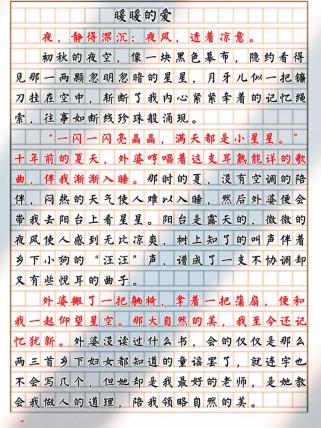 暖暖的爱
夜，静得深沉；夜风，透着凉意。
初秋的夜空，像一块黑色幕布，隐约看得
见那一两颗忽明忽暗的星星，月牙儿似一把镰
刀挂在空中，斩断了我内心紧紧牵着的记忆绳
索，往事如断线珍珠般涌现。
“一闪一闪亮晶晶，满天都是小星星。”
十年前的夏天，外婆哼唱着这支耳熟能详的歌
曲，伴我渐渐入睡。那时的夏，没有空调的陪
伴，闷热的天气使人难以入睡，然后外婆便会
带我去阳台上看星星。阳台是露天的，微微的
夜风使人感到无比凉爽，树上知了的叫声伴着
乡下小狗的“汪汪”声，谱成了一支不协调却
又有些悦耳的曲子。
外婆搬了一把躺椅，拿着一把蒲扇，便和
我一起仰望星空。那大自然的美，我至今还记
忆犹新。外婆没读过什么书，会的仅仅是那么
两三首乡下妇女都知道的童谣罢了，就连字也
不会写几个，但她却是我最好的老师，是她教
会我做人的道理，陪我领略自然的美。